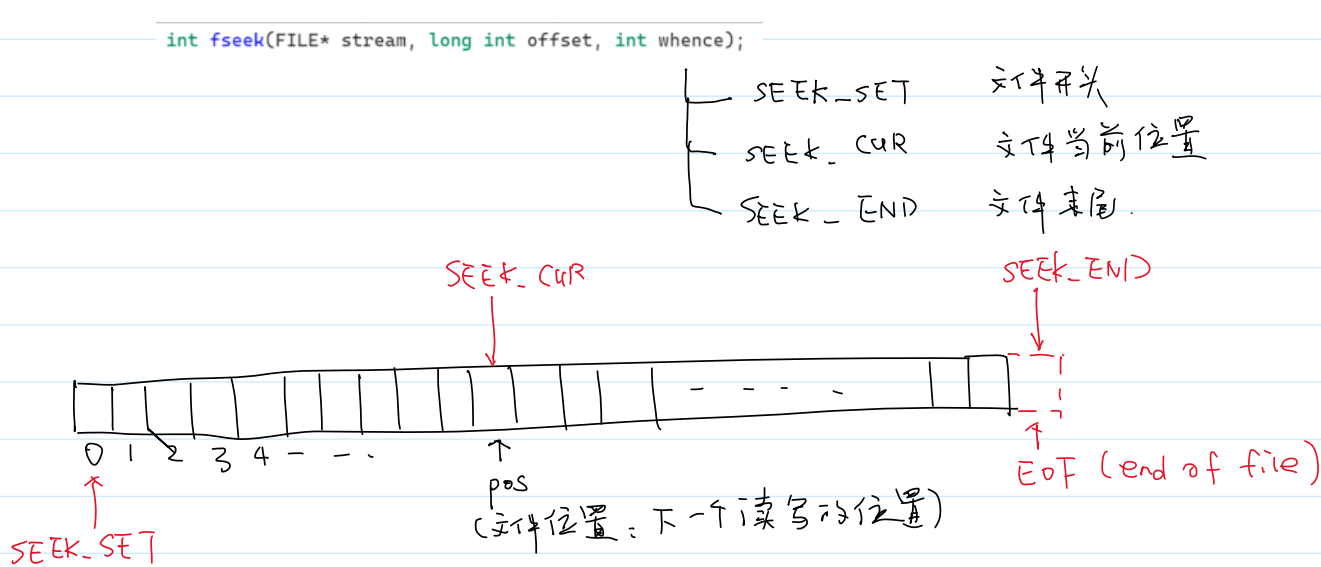 int fseek(FILE* stream, long int offset, int whence);
SEEK_SET 文件开头
SEEK_CUR 文件当前位置
SEEK_END 文件末尾.
SEEK_CUR
SEEK_END
0 1 2 3 4 - - .
pos
(文件位置: 下一个读写的位置)
EOF (end of file)
SEEK_SET